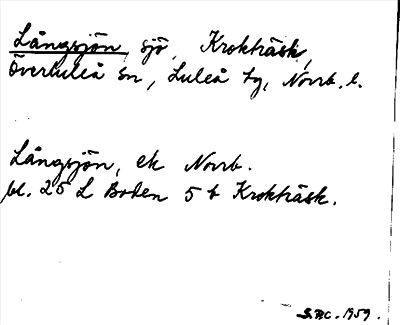 Långsjön, sjö, Krokträsk,
Överluleå sn, Luleå tg, Norrb. l.
Långsjön, ek Norrb.
bl. 25 L Boden 5 b Krokträsk.
S.BC. 1959.